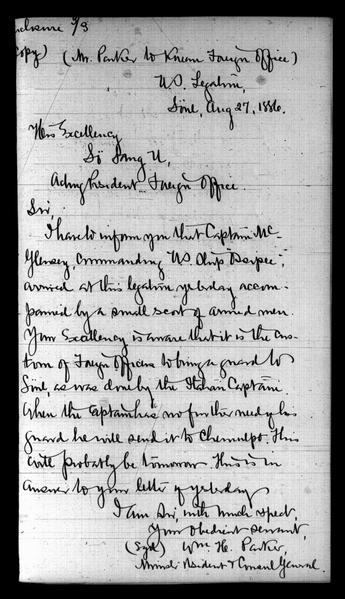 Enclosure 4/3
Copy) (Mr. Parker to Korean Foreign Office)
U.S. Legation,
Söul, Aug 27, 1886.
His Excellency
So Sang U,
Acting President Foreign Office
Sir,
I have to inform you that Captain Mc-
Glensey, Commanding U.S. Ship "Ossipee",
arrived at this legation yesterday accom-
panied by a small escort of armed men.
Your Excellency is aware that it is the cus-
tom of Foreign Officers to bring a guard to
Söul, as was done by the Italian Captain.
When the Captain has no further need of his
guard he will send it to Chemulpo. This
will probably be tomorrow. This is in
answer to your letter of yesterday
I am Sir, with much respect,
Your obedient servant,
(Sgd) Wm. H. Parker,
Minister Resident & Consul General.